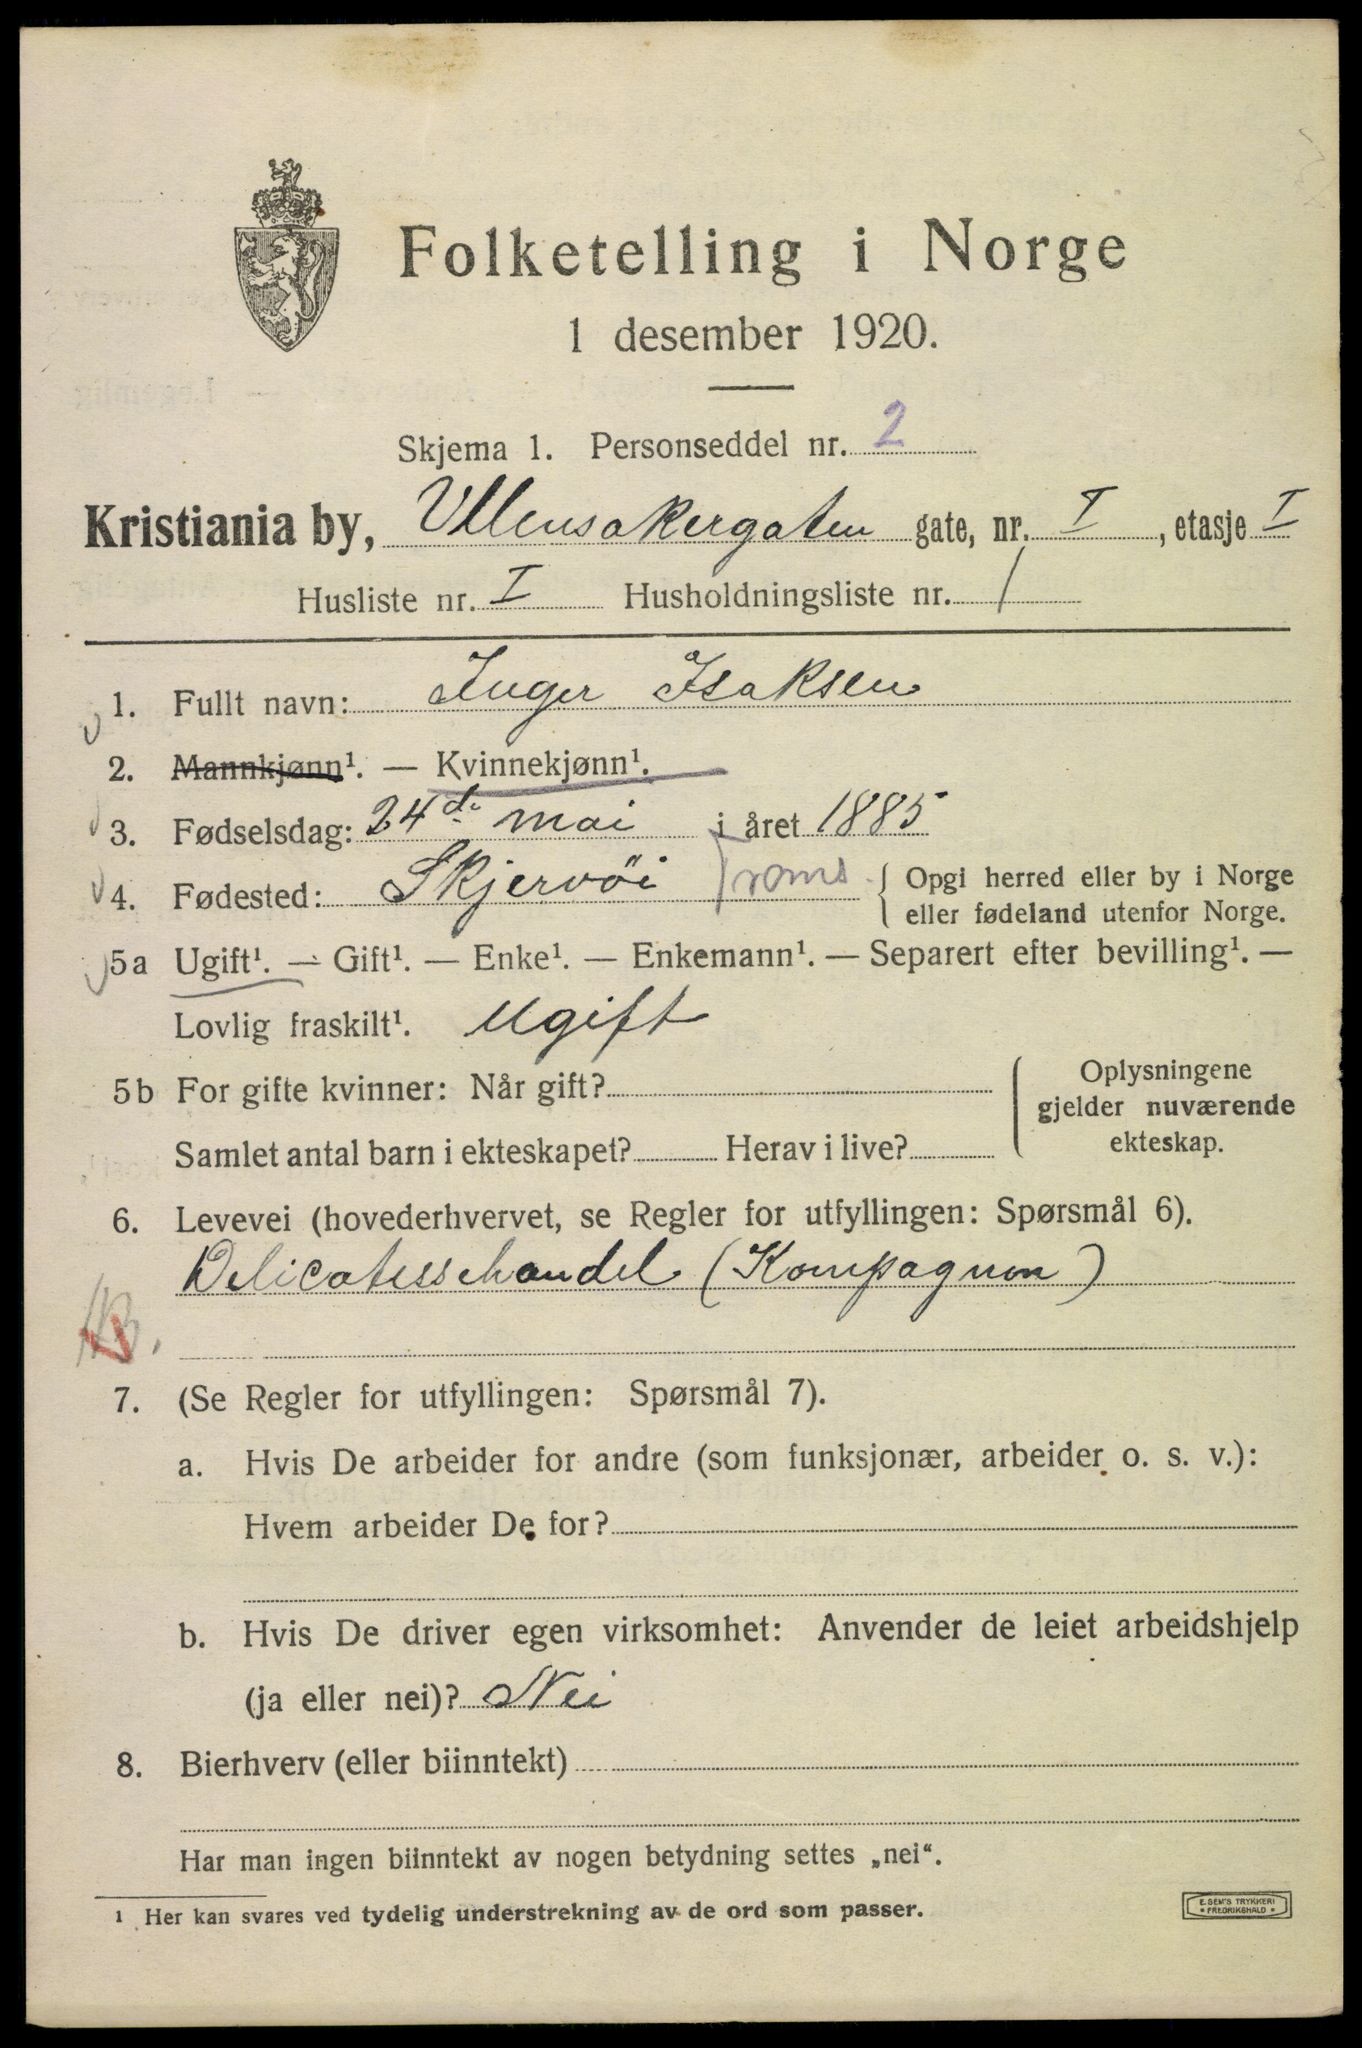 Folketelling i Norge
1 desember 1920.
Skjema 1. Personseddel nr. 2
Kristiania by, Ullensakergaten gate, nr. I, etasje I
Husliste nr. I Husholdningsliste nr. 1
1. Fullt navn: Inger Isaksen
2. Mannkjønn¹. — Kvinnekjønn¹.
3. Fødselsdag: 24de mai i året 1885
4. Fødested: Skjervöi Troms { Opgi herred eller by i Norge
eller fødeland utenfor Norge.
5a Ugift¹. — Gift¹. — Enke¹. — Enkemann¹. — Separert efter bevilling¹. —
Lovlig fraskilt¹. Ugift
5b For gifte kvinner: Når gift?
Samlet antal barn i ekteskapet? Herav i live?
Oplysningene
gjelder nuværende
ekteskap.
6. Levevei (hovederhvervet, se Regler for utfyllingen: Spørsmål 6).
Delicatessehandel (Kompagnon)
7. (Se Regler for utfyllingen: Spørsmål 7).
a. Hvis De arbeider for andre (som funksjonær, arbeider o. s. v.):
Hvem arbeider De for?
b. Hvis De driver egen virksomhet: Anvender de leiet arbeidshjelp
(ja eller nei)? Nei
8. Bierhverv (eller biinntekt)
Har man ingen biinntekt av nogen betydning settes „nei“.
1 Her kan svares ved tydelig understrekning av de ord som passer.
E. SEM'S TRYKKERI
• FREDRIKSHALD •